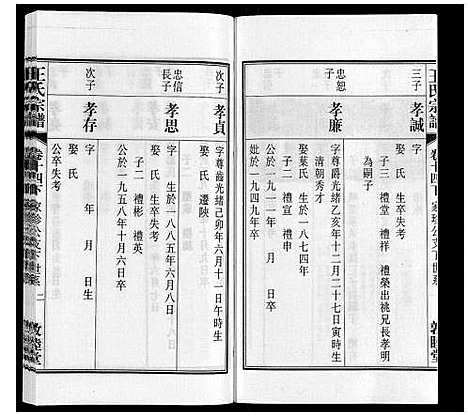 王氏宗譜
敦睦堂
三子
孝誠
字
娶 氏 生卒失考
子三 禮堂 禮祥 禮榮出祧兄長孝明
為嗣子
忠恕
子
孝廉
字尊爵光緒乙亥年十二月二十七日寅時生
清朝秀才
娶葉氏 生於一八七四年
子二 禮宣 禮申
公於一九一一年 月 日卒
妣於一九四九年
次子
孝貞
字尊齒光緒己卯年六月十一日午時生
娶 氏 遷陝
忠信
長子
孝思
字 生於一八八五年六月八日
娶 氏 生卒失考
子二 禮彬 禮英
公於一九五八年十月六日卒
次子
孝存
字 年 月 日生
娶 氏
公卒失考
王氏宗譜
卷十四下
二
敦睦堂